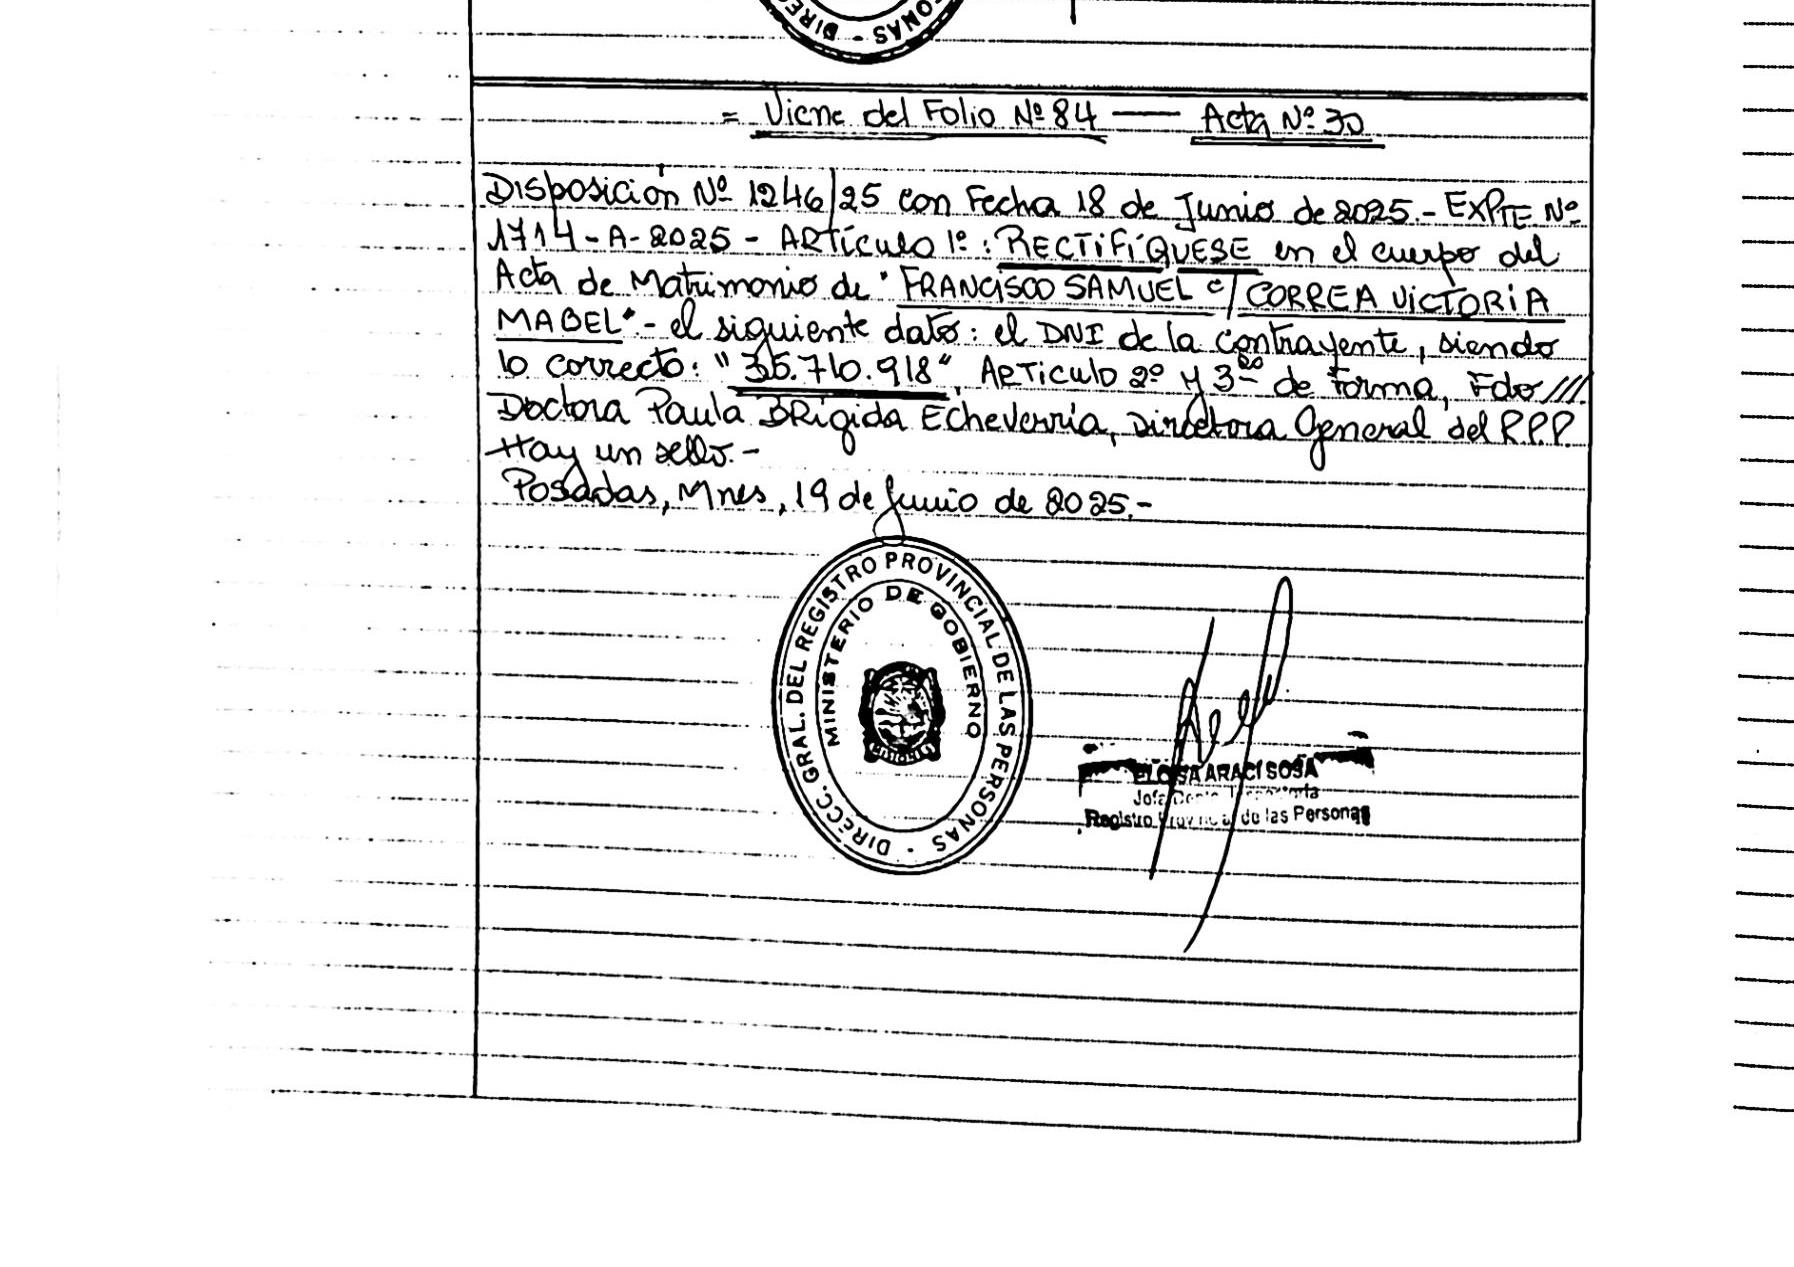 DIRECC. - ONAS
= Viene del Folio Nº 84 — Acta Nº 30
Disposición Nº 1246/25 con Fecha 18 de Junio de 2025.- EXPTE Nº
1714-A-2025 - ARTículo 1º: RECTIFÍQUESE en el cuerpo del
Acta de Matrimonio de "FRANCISCO SAMUEL c/ CORREA VICTORIA
MABEL".- el siguiente dato: el DNI de la contrayente, siendo
lo correcto: "35.710.918", ARTiculo 2º y 3º de Forma, Fdo ///.
Doctora Paula BRígida Echeverría, Directora General del R.P.P.
Hay un sello.-
Posadas, Mnes, 19 de Junio de 2025.-
DIRECC. GRAL. DEL REGISTRO PROVINCIAL DE LAS PERSONAS
MINISTERIO DE GOBIERNO
MISIONES
ELOISA ARACI SOSA
Registro Provincial de las Personas